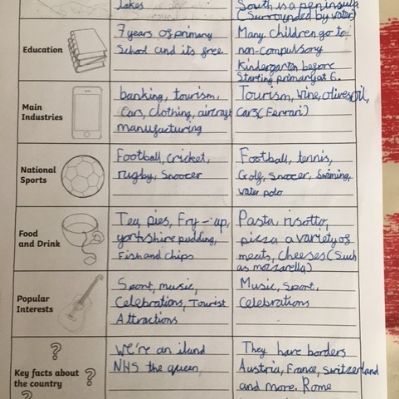 lakes
South is a peninsula
(Surrounded by water)
Education
7 years of primary
School and its free
Many children go to
non-compulsory
Kindergarten before
Starting primary at 6.
Main
Industries
banking, tourism,
Cars, clothing, aircraft
manufacturing
Tourism, wine, olives, oil,
Cars (Ferrari)
National
Sports
Football, cricket,
rugby, Snooker
Football, tennis,
Golf, Snooker, Swimming,
water polo
Food
and Drink
Tea, pies, Fry-up,
yorkshire pudding,
Fish and chips
Pasta risotto,
pizza a variety of
meats, cheeses (Such
as mozzarella)
Popular
Interests
Sport, music,
Celebrations, Tourist
Attractions
Music, Sport,
Celebrations
Key facts about
the country
We're an iland
NHS the queen
They have borders
Austria, France, Switzerland
and more. Rome